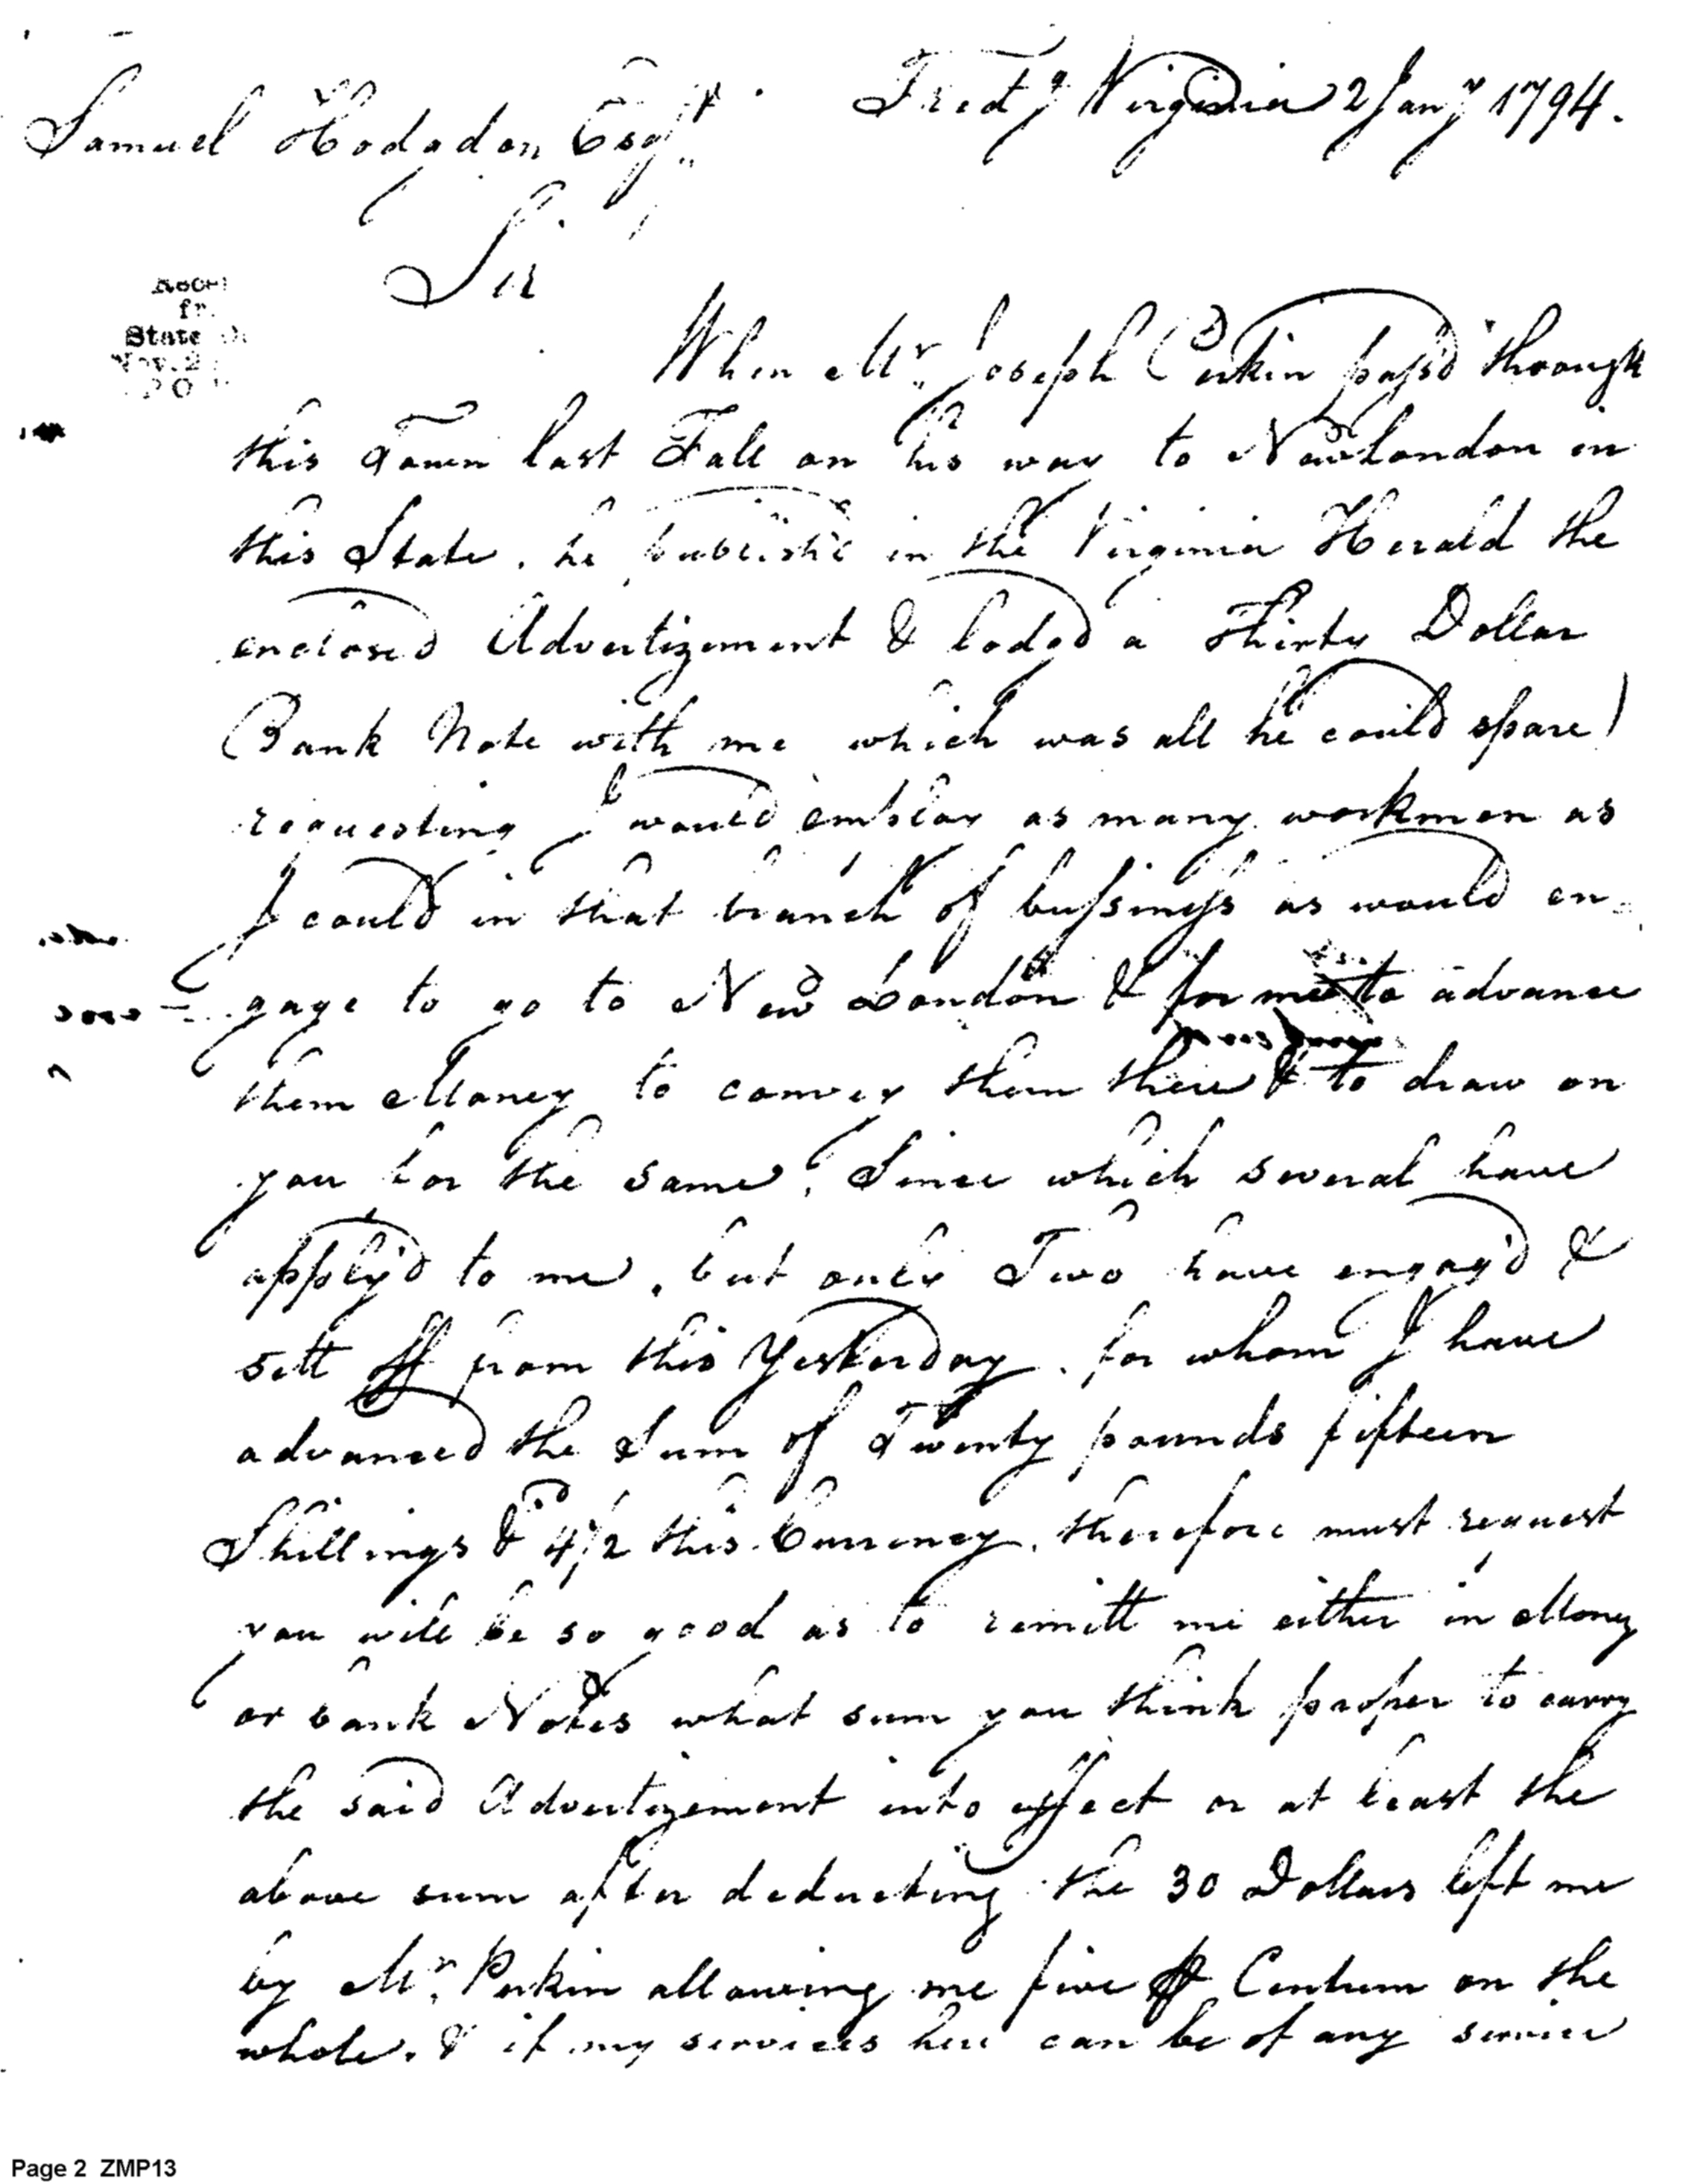 Fredg Virginia 2 Jany 1794.
Samuel Hodgdon Esqr.
Sir
State
Nov. 2
When Mr. Joseph Perkin pass'd through
this Town last Fall on his way to New London in
this State, he publish'd in the Virginia Herald the
enclosed Advertizement & lodgd a Thirty Dollar
Bank Note with me which was all he could spare
requesting I would employ as many workmen as
I could in that branch of bussiness as would en-
gage to go to New London & for me to advance
them Money to convey them there & to draw on
you for the same. Since which several have
apply'd to me, but only Two have engag'd &
sett off from this Yesterday, for whom I have
advanced the Sum of Twenty pounds fifteen
Shillings & 4 1/2d this Currency, therefore must request
you will be so good as to remitt me either in Mony
or bank Notes what sum you think proper to carry
the said Advertizement into effect or at least the
above sum after deducting the 30 Dollars left me
by Mr. Perkin allowing me five ⅌ Centum on the
whole. & if my services here can be of any service
Page 2 ZMP13